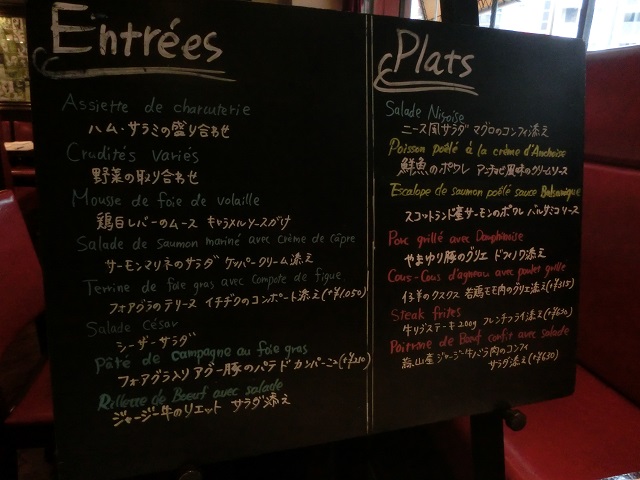 Entrées
Assiette de charcuterie
ハム・サラミの盛り合わせ
Crudités Variés
野菜の取り合わせ
Mousse de foie de volaille
鶏白レバーのムース キャラメルソースがけ
Salade de Saumon mariné avec crème de câpre
サーモンマリネのサラダ ケッパークリーム添え
Terrine de foie gras avec compote de figue
フォアグラのテリーヌ イチヂクのコンポート添え(+¥1,050)
Salade César
シーザーサラダ
Pâté de campagne au foie gras
フォアグラ入り アグー豚のパテ ド カンパーニュ(+¥210)
Rillette de Boeuf avec salade
ジャージー牛のリエット サラダ添え
Plats
Salade Niçoise
ニース風サラダ マグロのコンフィ添え
Poisson poêlé à la crème d'Anchoise
鮮魚のポワレ アンチョビ風味のクリームソース
Escalope de saumon poêlé sauce Balsamique
スコットランド産サーモンのポワレ バルサミコソース
Porc grillé avec Dauphinoise
やまゆり豚のグリエ ドフィノワ添え
Cous-Cous d'agneau avec poulet grillé
仔羊のクスクス 若鶏モモ肉のグリエ添え(+¥315)
Steak frites
牛リブステーキ200g フレンチフライ添え(+¥630)
Poitrine de Boeuf confit avec salade
蒜山産 ジャージー牛バラ肉のコンフィ
サラダ添え(+¥630)